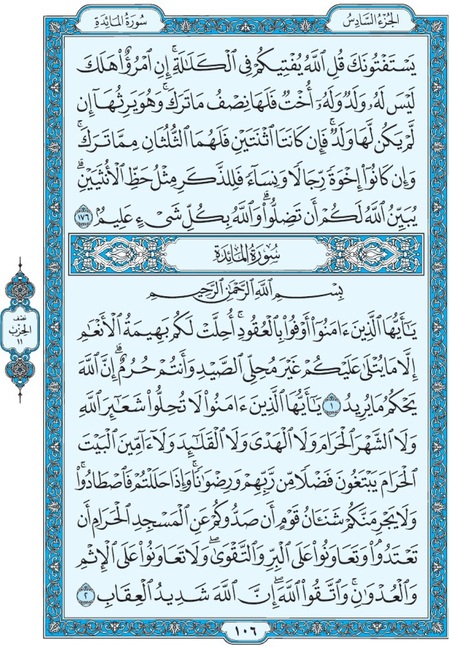 الجزء السادس
سورة المائدة
يَسْتَفْتُونَكَ قُلِ اللَّهُ يُفْتِيكُمْ فِي الْكَلَالَةِ ۚ إِنِ امْرُؤٌا۟ هَلَكَ
لَيْسَ لَهُۥ وَلَدٌ وَلَهُۥٓ أُخْتٌ فَلَهَا نِصْفُ مَا تَرَكَ ۚ وَهُوَ يَرِثُهَآ إِن
لَّمْ يَكُن لَّهَا وَلَدٌ ۚ فَإِن كَانَتَا اثْنَتَيْنِ فَلَهُمَا الثُّلُثَانِ مِمَّا تَرَكَ ۚ
وَإِن كَانُوٓا۟ إِخْوَةً رِّجَالًا وَنِسَآءً فَلِلذَّكَرِ مِثْلُ حَظِّ الْأُنثَيَيْنِ ۗ
يُبَيِّنُ اللَّهُ لَكُمْ أَن تَضِلُّوا۟ ۗ وَاللَّهُ بِكُلِّ شَىْءٍ عَلِيمٌۢ ١٧٦
سورة المائدة
بِسْمِ اللَّهِ الرَّحْمَٰنِ الرَّحِيمِ
يَٰٓأَيُّهَا الَّذِينَ ءَامَنُوٓا۟ أَوْفُوا۟ بِالْعُقُودِ ۚ أُحِلَّتْ لَكُم بَهِيمَةُ الْأَنْعَٰمِ
إِلَّا مَا يُتْلَىٰ عَلَيْكُمْ غَيْرَ مُحِلِّى الصَّيْدِ وَأَنتُمْ حُرُمٌ ۗ إِنَّ اللَّهَ
يَحْكُمُ مَا يُرِيدُ ١ يَٰٓأَيُّهَا الَّذِينَ ءَامَنُوا۟ لَا تُحِلُّوا۟ شَعَٰٓئِرَ اللَّهِ
وَلَا الشَّهْرَ الْحَرَامَ وَلَا الْهَدْىَ وَلَا الْقَلَٰٓئِدَ وَلَآ ءَآمِّينَ الْبَيْتَ
الْحَرَامَ يَبْتَغُونَ فَضْلًا مِّن رَّبِّهِمْ وَرِضْوَٰنًا ۚ وَإِذَا حَلَلْتُمْ فَاصْطَادُوا۟ ۚ
وَلَا يَجْرِمَنَّكُمْ شَنَـَٔانُ قَوْمٍ أَن صَدُّوكُمْ عَنِ الْمَسْجِدِ الْحَرَامِ أَن
تَعْتَدُوا۟ ۘ وَتَعَاوَنُوا۟ عَلَى الْبِرِّ وَالتَّقْوَىٰ ۖ وَلَا تَعَاوَنُوا۟ عَلَى الْإِثْمِ
وَالْعُدْوَٰنِ ۚ وَاتَّقُوا۟ اللَّهَ ۖ إِنَّ اللَّهَ شَدِيدُ الْعِقَابِ ٢
نصف
الحزب
١١
١٠٦